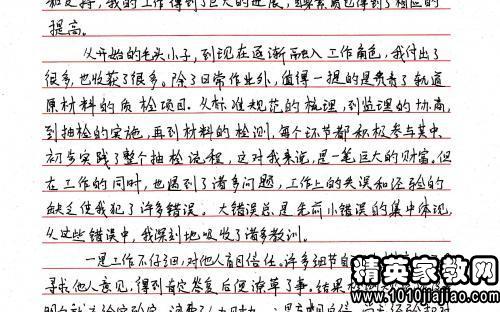 和支持，我的工作得到了巨大的进展，自身素质也得到了相应的
提高。
从开始的毛头小子，到现在逐渐融入工作角色，我付出了
很多，也收获了很多。除了日常作业外，值得一提的是负责了轨道
原材料的质检项目。从标准规范的梳理，到监理的协商，
到抽检的实施，再到材料的检测，每个环节都积极参与其中，
初步实践了整个抽检流程，这对我来说，是一笔巨大的财富，但
在工作的同时，也遇到了诸多问题，工作上的失误和经验的
缺乏使我犯了许多错误。大错误总是先前小错误的集中体现，
从这些错误中，我深刻地吸收了诸多教训。
一是工作不仔细，对他人盲目信任。许多细节自
寻找他人意见，得到肯定答复后便潦草了事。结果
精英家教网
www.1010jiajiao.com